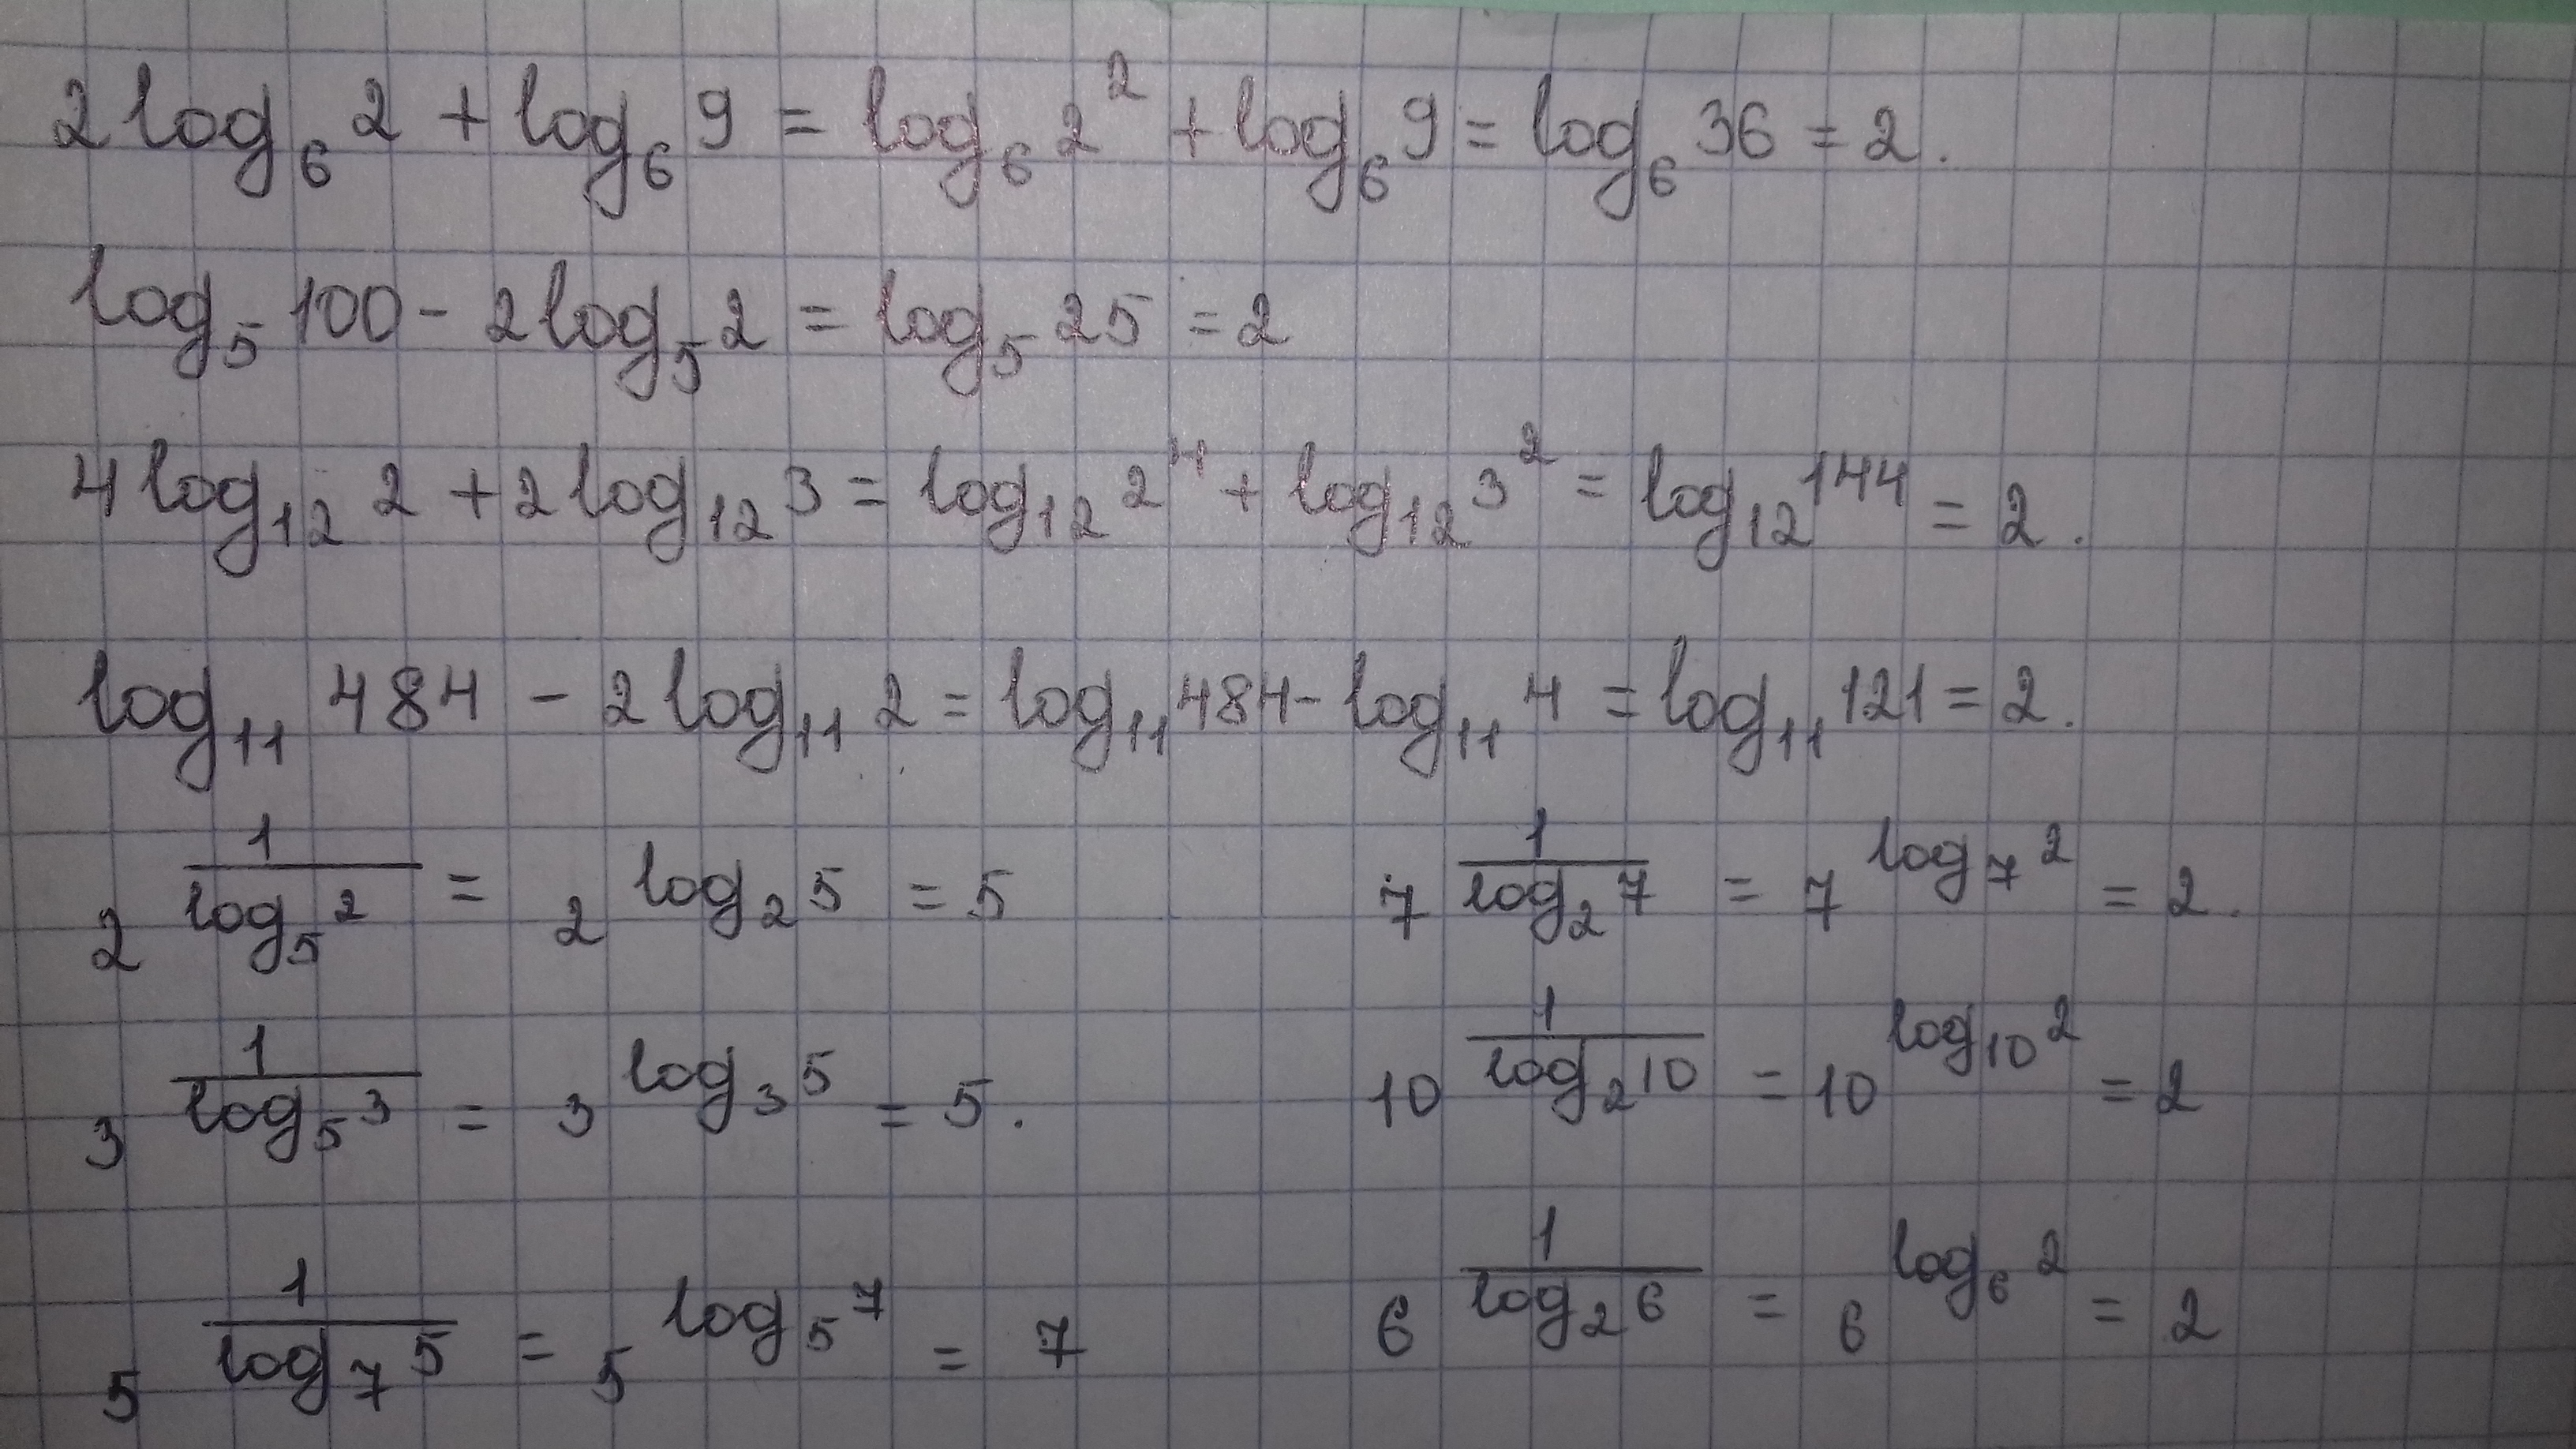 2 log₆ 2 + log₆ 9 = log₆ 2² + log₆ 9 = log₆ 36 = 2.
log₅ 100 - 2 log₅ 2 = log₅ 25 = 2
4 log₁₂ 2 + 2 log₁₂ 3 = log₁₂ 2⁴ + log₁₂ 3² = log₁₂ 144 = 2.
log₁₁ 484 - 2 log₁₁ 2 = log₁₁ 484 - log₁₁ 4 = log₁₁ 121 = 2.
2^(1/log₅ 2) = 2^(log₂ 5) = 5
7^(1/log₂ 7) = 7^(log₇ 2) = 2.
3^(1/log₅ 3) = 3^(log₃ 5) = 5.
10^(1/log₂ 10) = 10^(log₁₀ 2) = 2
5^(1/log₇ 5) = 5^(log₅ 7) = 7
6^(1/log₂ 6) = 6^(log₆ 2) = 2